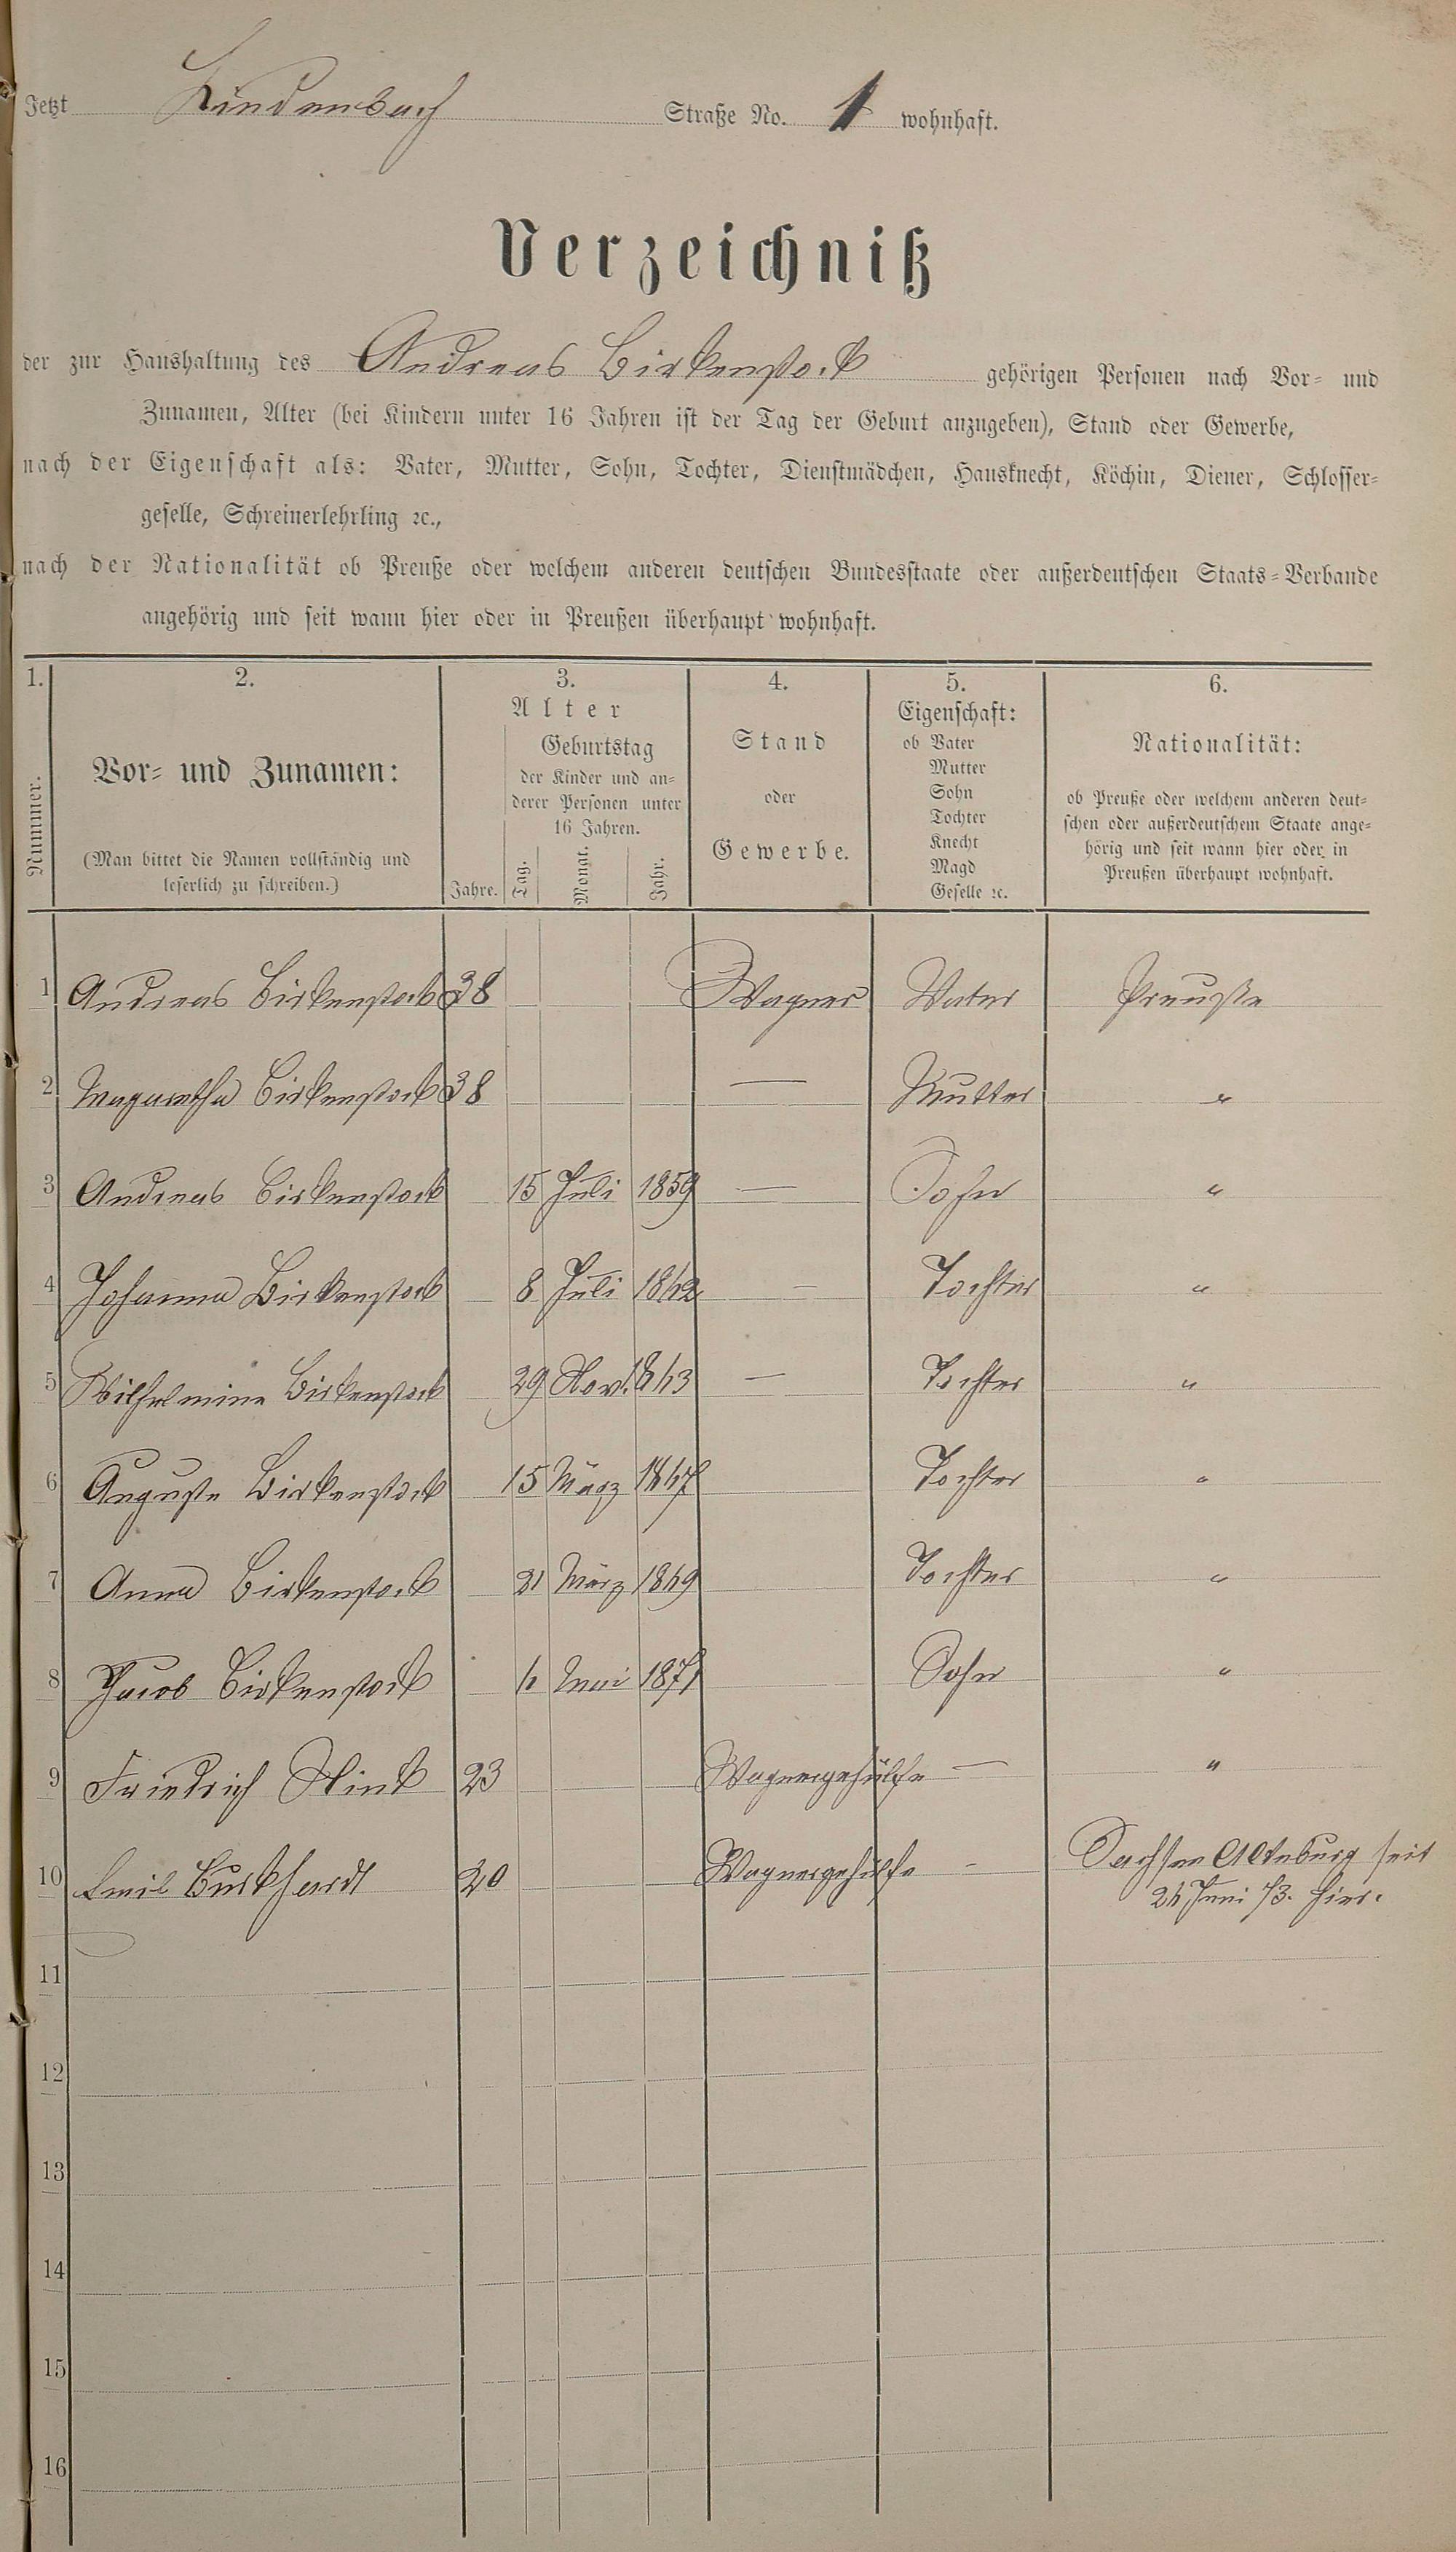 Jetzt Lindenbach Straße No. 1 wohnhaft.
Verzeichniß
der zur Haushaltung des Andreas Birkenstock gehörigen Personen nach Vor- und
Zunamen, Alter (bei Kindern unter 16 Jahren ist der Tag der Geburt anzugeben), Stand oder Gewerbe,
nach der Eigenschaft als: Vater, Mutter, Sohn, Tochter, Dienstmädchen, Hausknecht, Köchin, Diener, Schlosser-
geselle, Schreinerlehrling ꝛc.,
nach der Nationalität ob Preuße oder welchem anderen deutschen Bundesstaate oder außerdeutschen Staats-Verbande
angehörig und seit wann hier oder in Preußen überhaupt wohnhaft.
1.
Nummer.
2.
Vor- und Zunamen:
(Man bittet die Namen vollständig und
leserlich zu schreiben.)
3.
Alter
Geburtstag
der Kinder und an-
derer Personen unter
16 Jahren.
Jahre. Tag. Monat. Jahr.
4.
Stand
oder
Gewerbe.
5.
Eigenschaft:
ob Vater
Mutter
Sohn
Tochter
Knecht
Magd
Geselle ꝛc.
6.
Nationalität:
ob Preuße oder welchem anderen deut-
schen oder außerdeutschem Staate ange-
hörig und seit wann hier oder in
Preußen überhaupt wohnhaft.
1 Andreas Birkenstock 38 Wagner Vater Preuße
2 Magaretha Birkenstock 38 — Mutter "
3 Andreas Birkenstock 15 Juli 1859 — Sohn "
4 Johanna Birkenstock 8 Juli 1862 — Tochter "
5 Wilhelmine Birkenstock 29 Nov. 1863 — Tochter "
6 Auguste Birkenstock 15 März 1867 Tochter "
7 Anna Birkenstock 21 März 1869 Tochter "
8 Jacob Birkenstock 6 Mai 1871 Sohn "
9 Friedrich 23 Wagnergehülfe — "
10 Emil Burkhardt 20 Wagnergehülfe - Sachsen Altenburg seit
26 Juni 73. hier.
11
12
13
14
15
16